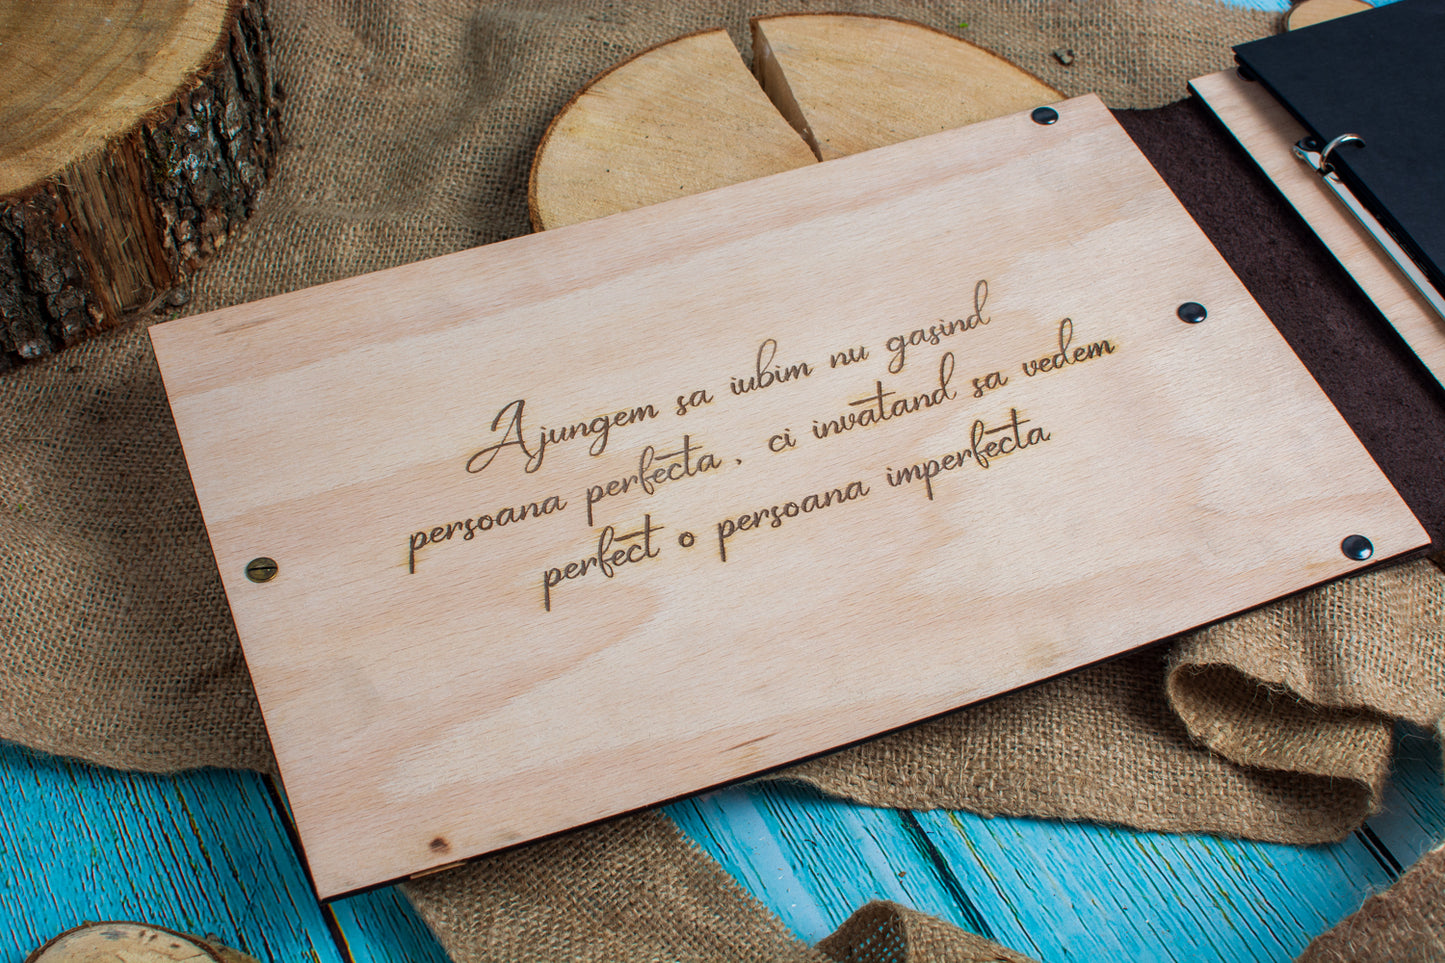 Ajungem sa iubim nu gasind
persoana perfecta, ci invatand sa vedem
perfect o persoana imperfecta